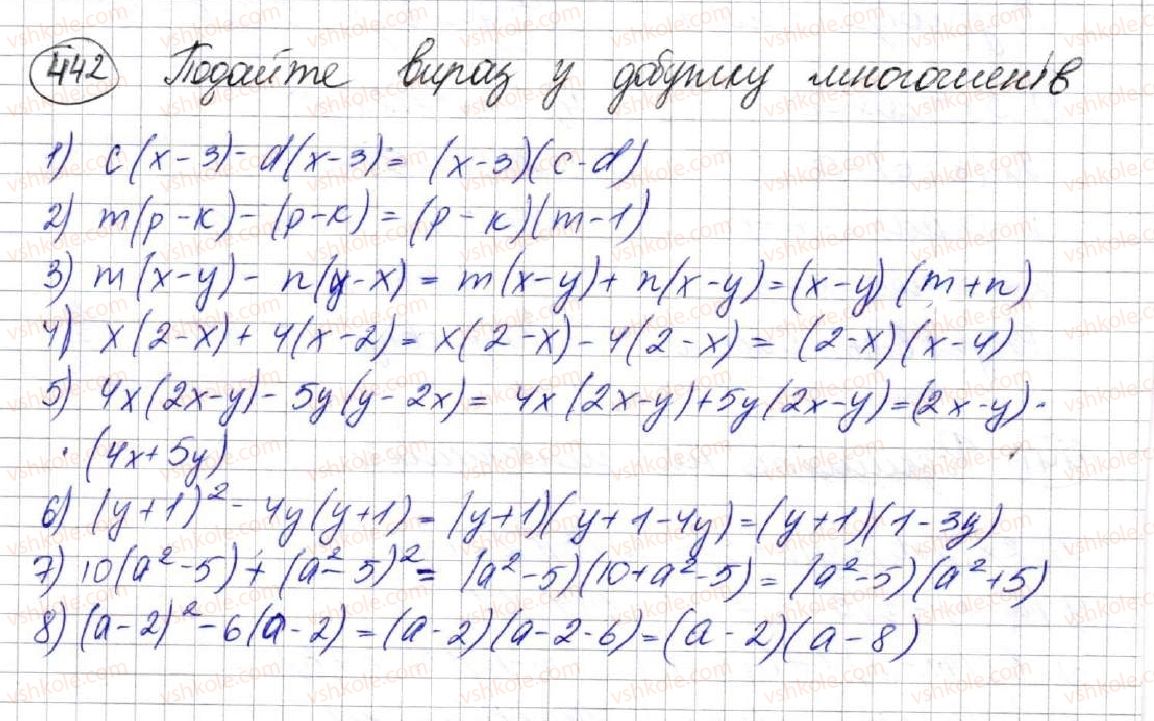 442 Подайте вираз у добутку многочленів
1) c(x-3)-d(x-3)=(x-3)(c-d)
2) m(p-k)-(p-k)=(p-k)(m-1)
3) m(x-y)-n(y-x)=m(x-y)+n(x-y)=(x-y)(m+n)
4) x(2-x)+4(x-2)=x(2-x)-4(2-x)=(2-x)(x-4)
5) 4x(2x-y)-5y(y-2x)=4x(2x-y)+5y(2x-y)=(2x-y)·
·(4x+5y)
6) (y+1)²-4y(y+1)=(y+1)(y+1-4y)=(y+1)(1-3y)
7) 10(a²-5)+(a²-5)²=(a²-5)(10+a²-5)=(a²-5)(a²+5)
8) (a-2)²-6(a-2)=(a-2)(a-2-6)=(a-2)(a-8)